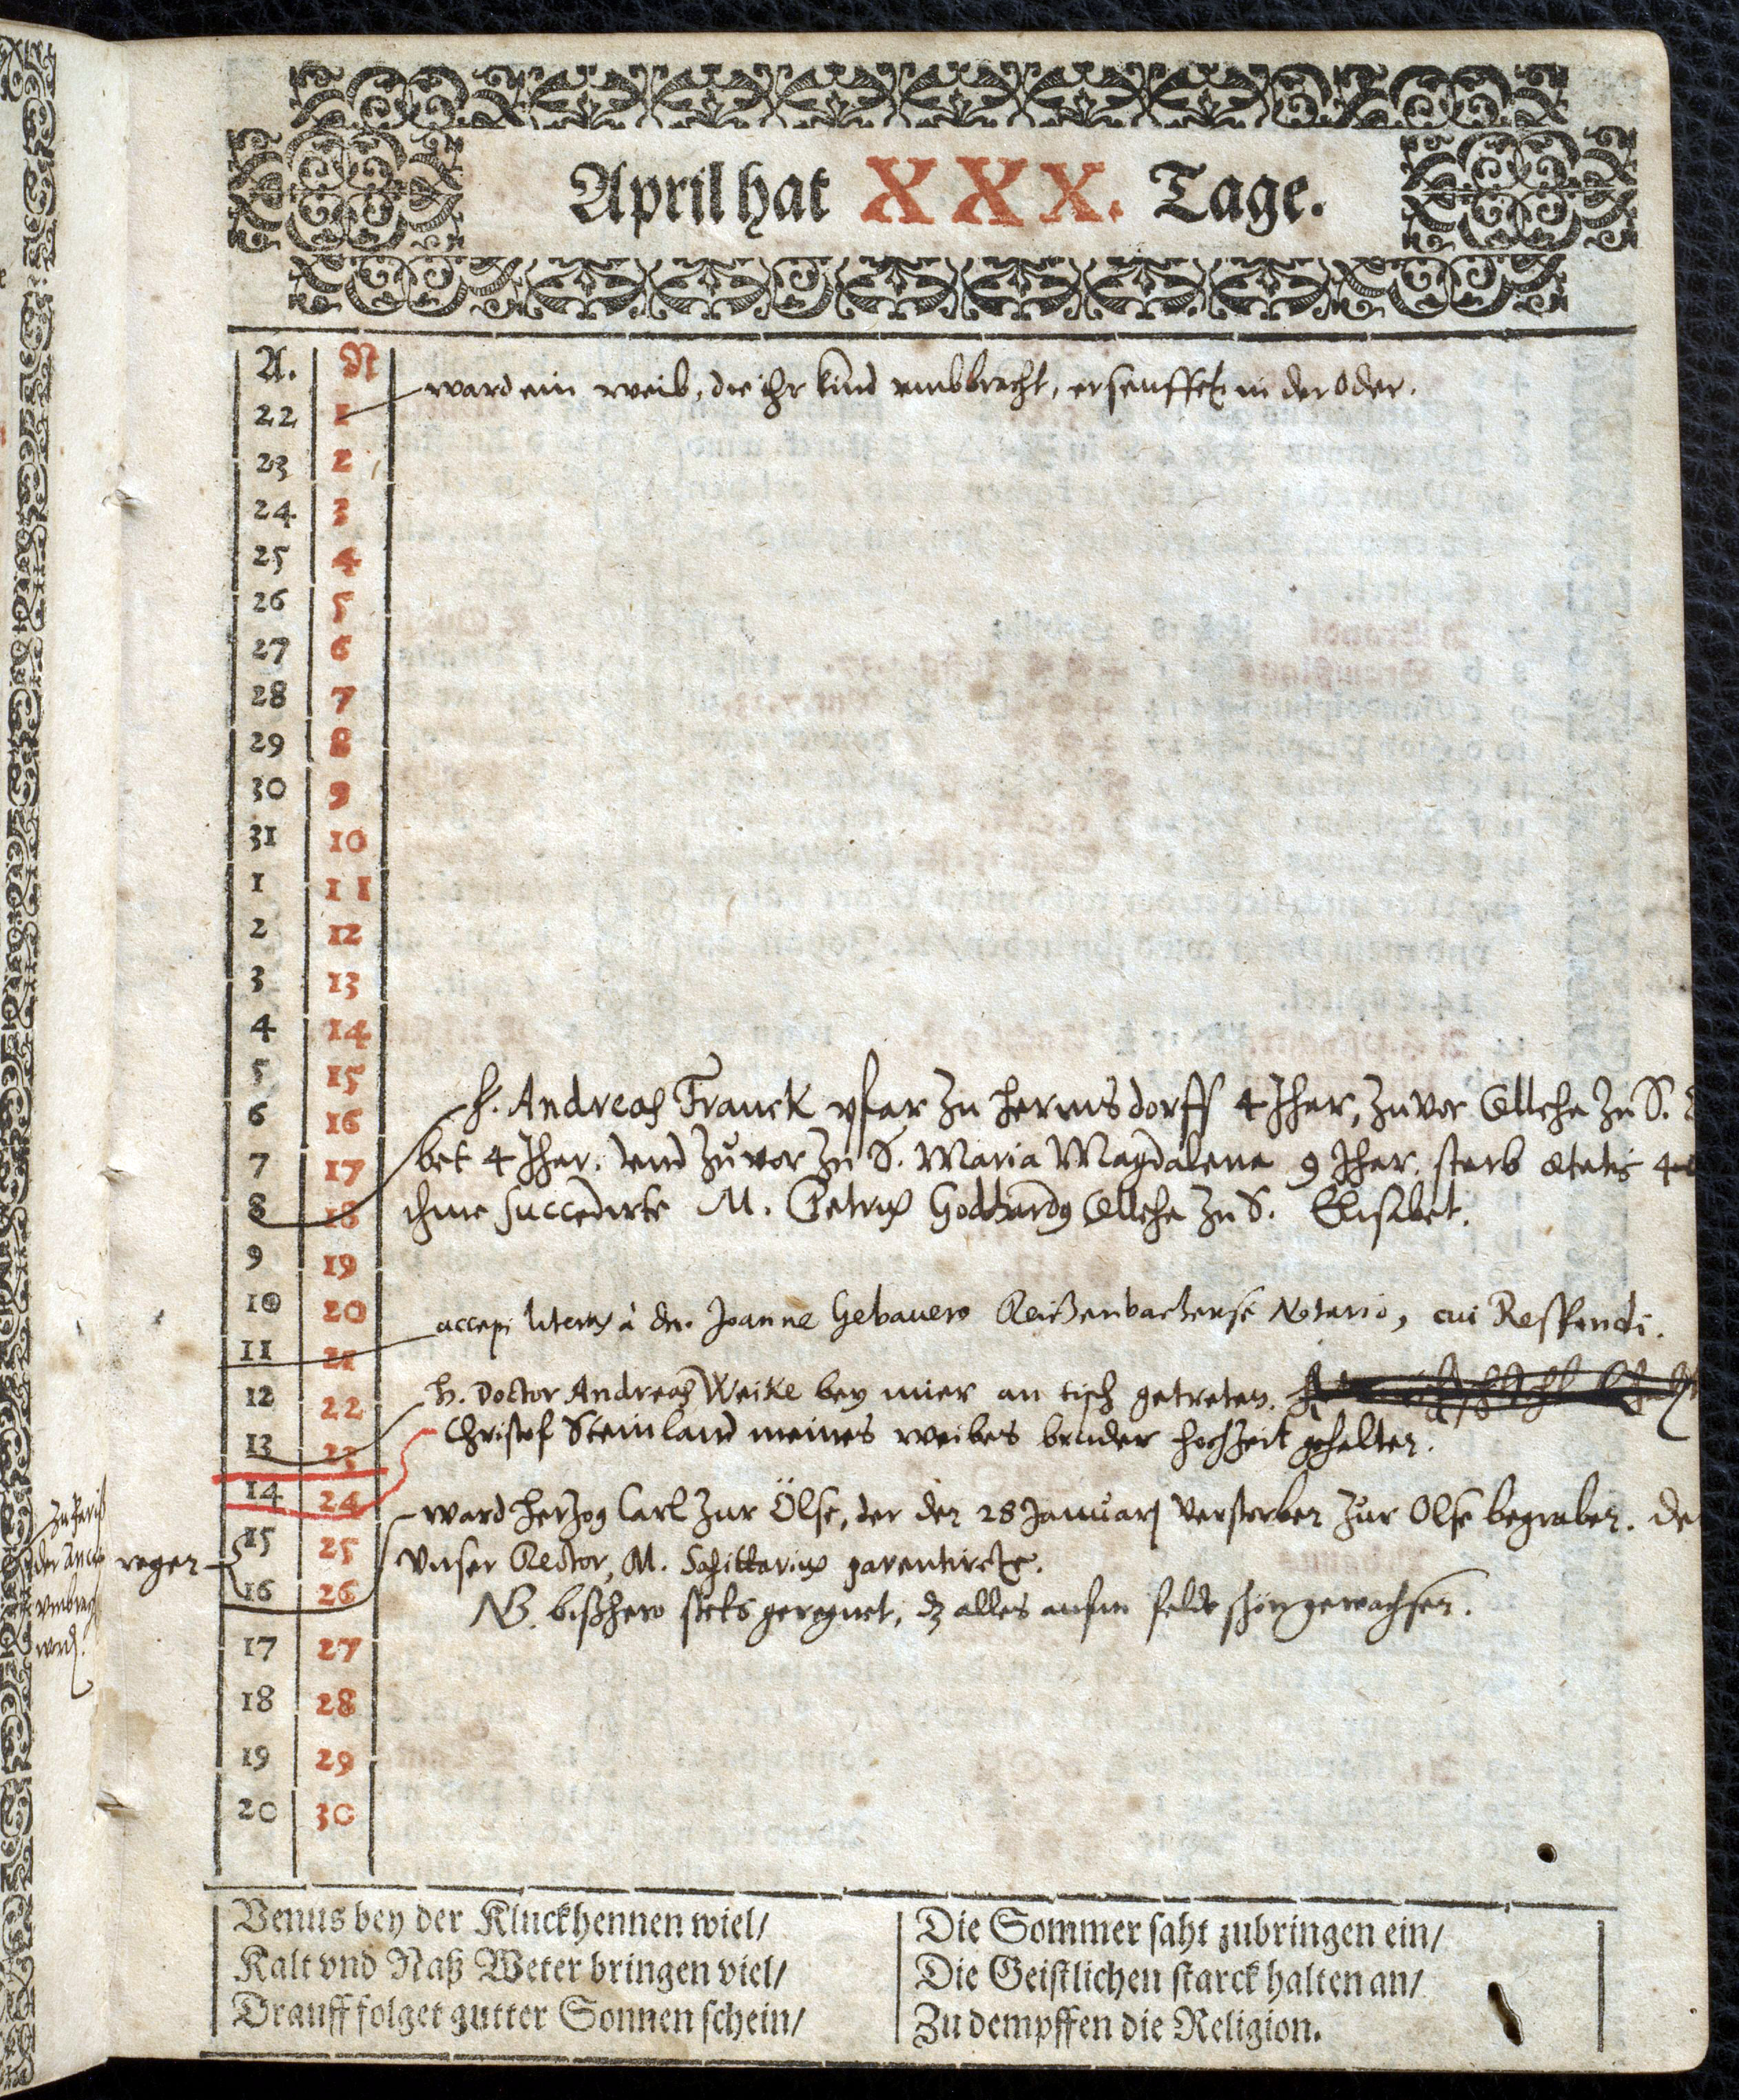 April hat XXX. Tage.
A. N
ward ein weib, die ihr kind umbbracht, erseuffet in der Oder.
22 1
23 2
24 3
25 4
26 5
27 6
28 7
29 8
30 9
31 10
1 11
2 12
3 13
4 14
5 15
H. Andreas Franck pfar zu Hermsdorff 4 Jhar, zuvor Ellche zu S.
6 16
bet 4 Jhar. vnd zuvor zu S. Maria Magdalena 9 Jhar. starb ætatis
7 17
ihme succedirte M. Petrus Goddhardg Ellche zu S. Elisabet.
8 18
9 19
10 20
accepi literas à dn. Joanne Gebauero Reichenbachense Notario, cui Respondi.
11 21
H. Doctor Andreas Weike bey mier an tisch getreten.
12 22
Christof Steinland meines weibes bruder hochzeit gehalten.
13 23
14 24
ward Herzog Carl zur Ölse, der den 28 Januarj verstorben zur Olse begraben. de
15 25
regen
Vnser Rector, M. Sagittarius parentirete.
16 26
NB. bißhero stets geregnet, dz alles aufm felde schön gewachsen.
17 27
18 28
19 29
20 30
zu Pariß
der Ancre
vmbrac
word.
Venus bey der Kluckhennen wiel/
Kalt vnd Naß Weter bringen viel/
Drauff folget gutter Sonnen schein/
Die Sommer saht zubringen ein/
Die Geistlichen starck halten an/
Zu dempffen die Religion.